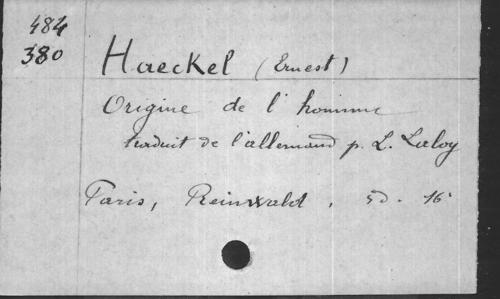 484
380
Haeckel (Ernest)
Origine de l'homme
traduit de l'allemand p. L. Laloy
Paris, Reinwald. sd. 16°